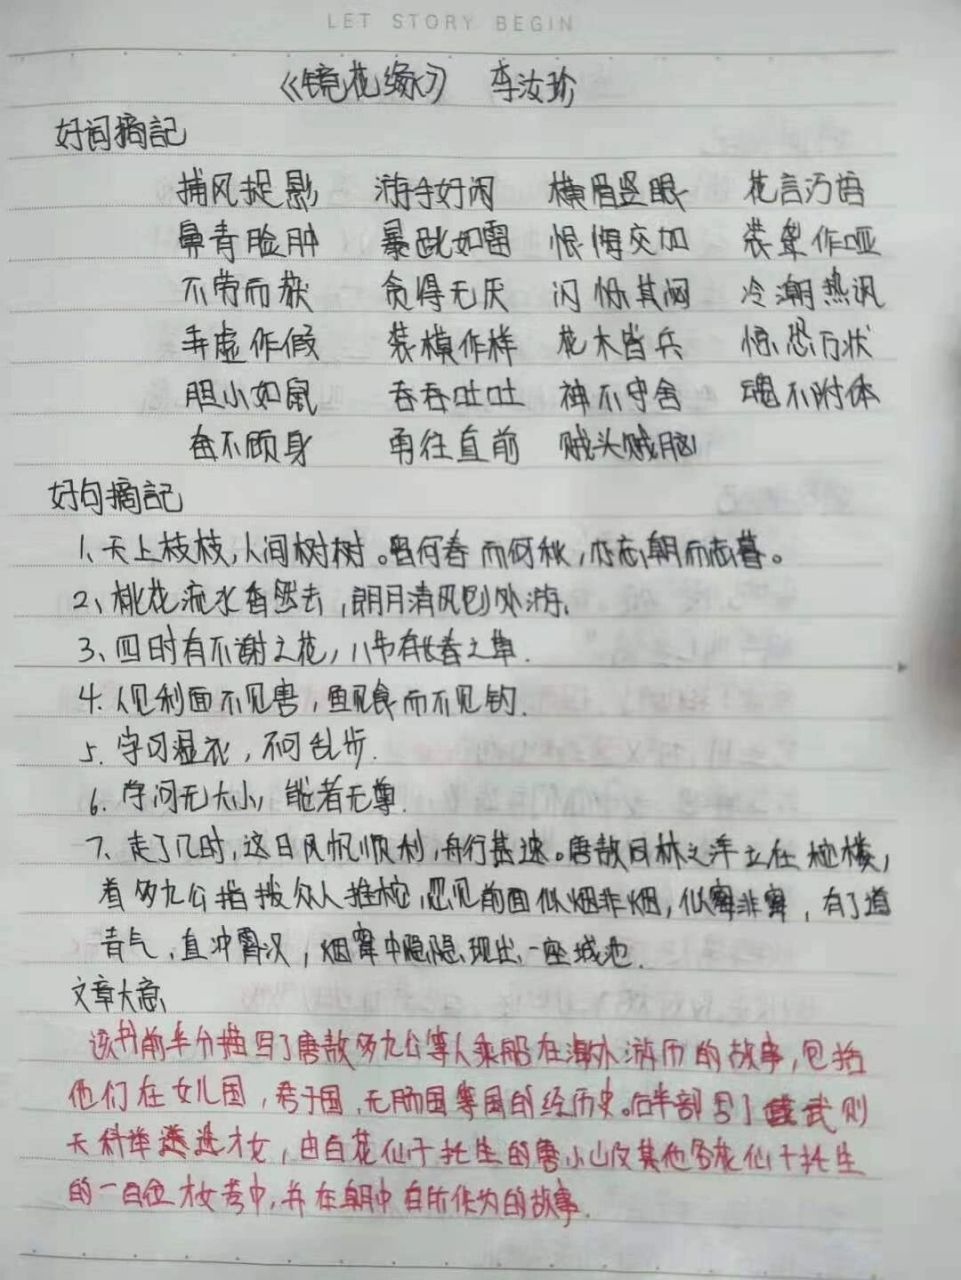 LET STORY BEGIN
《镜花缘》 李汝珍
好词摘記
捕风捉影 游手好闲 横眉竖眼 花言巧语
鼻青脸肿 暴跳如雷 恨悔交加 装聋作哑
不劳而获 贪得无厌 闪烁其词 冷潮热讽
弄虚作假 装模作样 花木皆兵 惊恐万状
胆小如鼠 吞吞吐吐 神不守舍 魂不附体
奋不顾身 勇往直前 贼头贼脑
好句摘記
1、天上枝枝,人间树树。曷何春而何秋,亦忘朝而忘暮。
2、桃花流水杳然去,朗月清风到处游.
3、四时有不谢之花,八节有长春之草.
4.人见利而不见害,鱼见食而不见钓.
5.字习湿衣,不可乱步.
6.学问无大小,能者无尊.
7、走了几时,这日风帆顺利,舟行甚速。唐敖同林之洋立在柁楼,
看多九公指拨众人推柁,忽见前面似烟非烟,似雾非雾,有了道
青气,直冲霄汉,烟雾中隐隐现出一座城池.
文章大意
该书前半分描写了唐敖多九公等人乘船在海外游历的故事,包括
他们在女儿国,君子国,无肠国等国的经历史。后半部写了武则
天科举选才女,由百花仙子托生的唐小山及其他各花仙子托生
的一百位才女考中,并在朝中有所作为的故事.